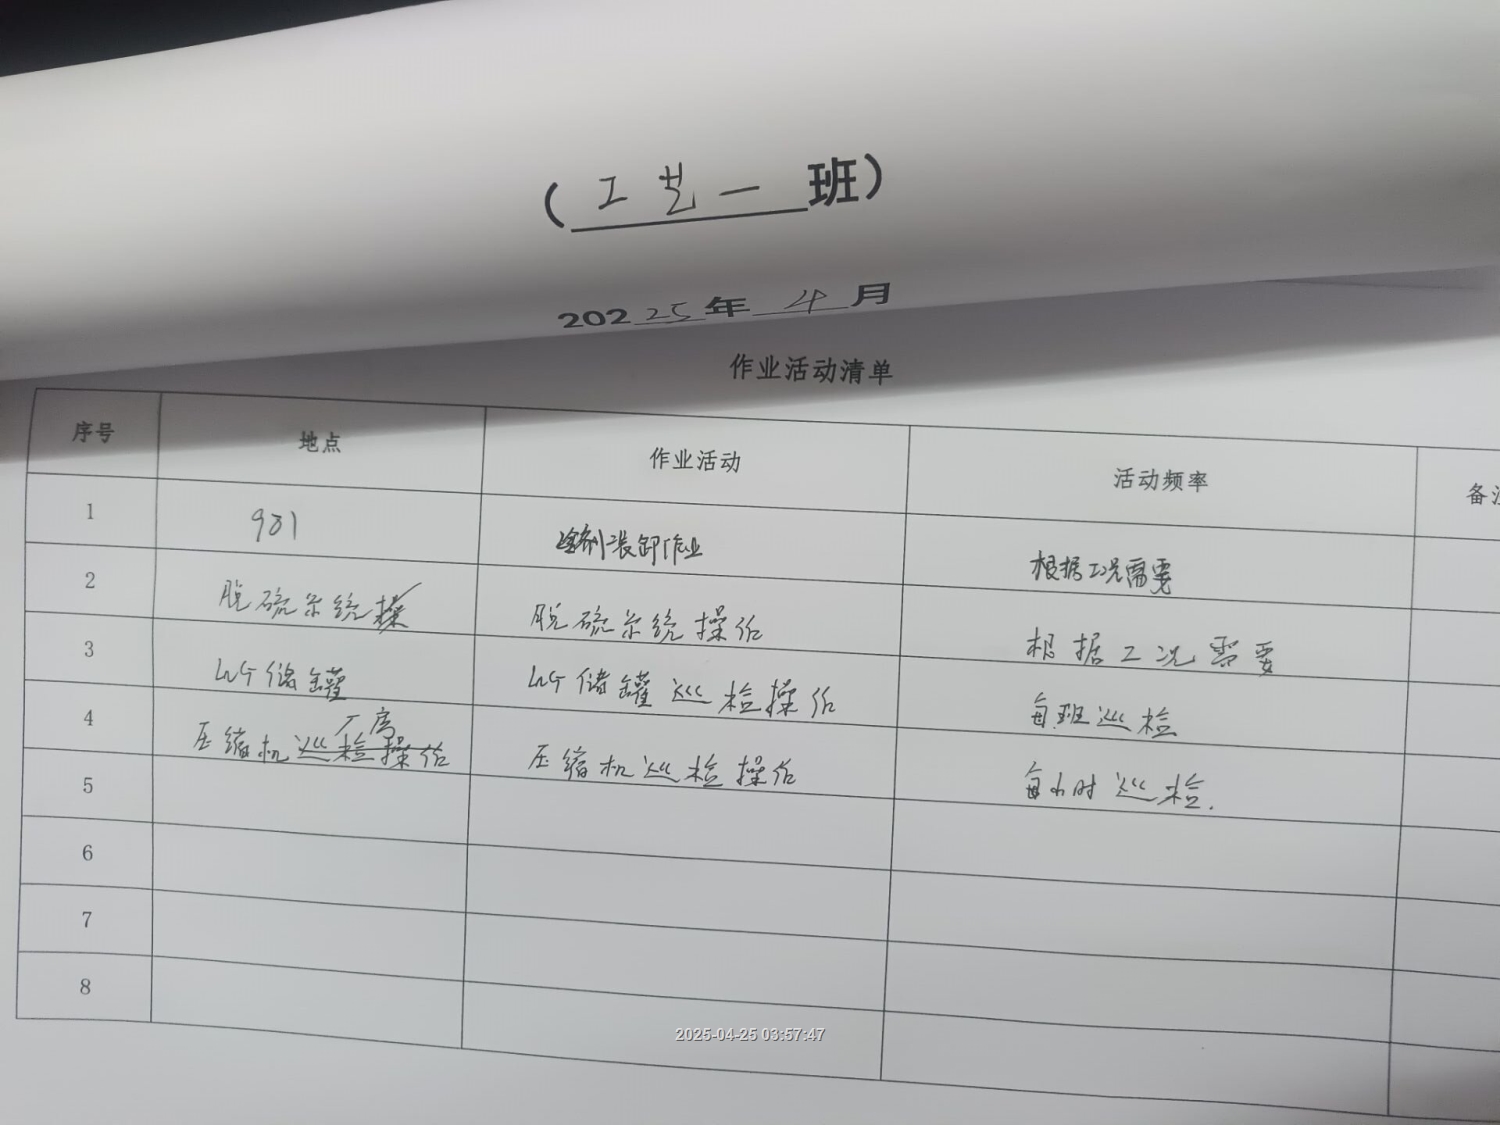 (工艺一班)
20225年4月
作业活动清单
序号 地点 作业活动 活动频率 备注
1 901 装卸作业 根据工况需要
2 脱硫系统 脱硫系统操作 根据工况需要
3 LNG储罐 LNG储罐巡检操作 每班巡检
4 压缩机厂房 压缩机巡检操作 每小时巡检.
5
6
7
8
2025-04-25 03:57:47